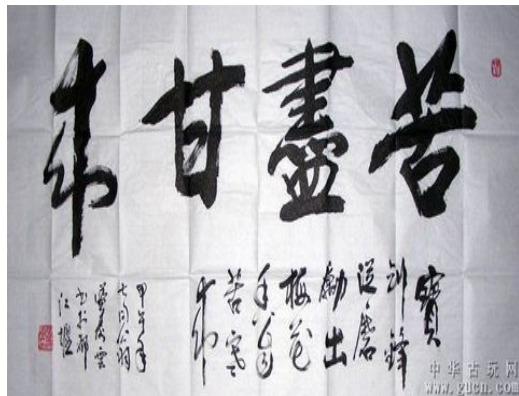 苦盡甘来
寶
剑鋒
從磨
勵出
梅花
香自
苦寒
来
甲午年
七旬翁
雲
书於都
江堰
中华古玩网
www.gucn.com